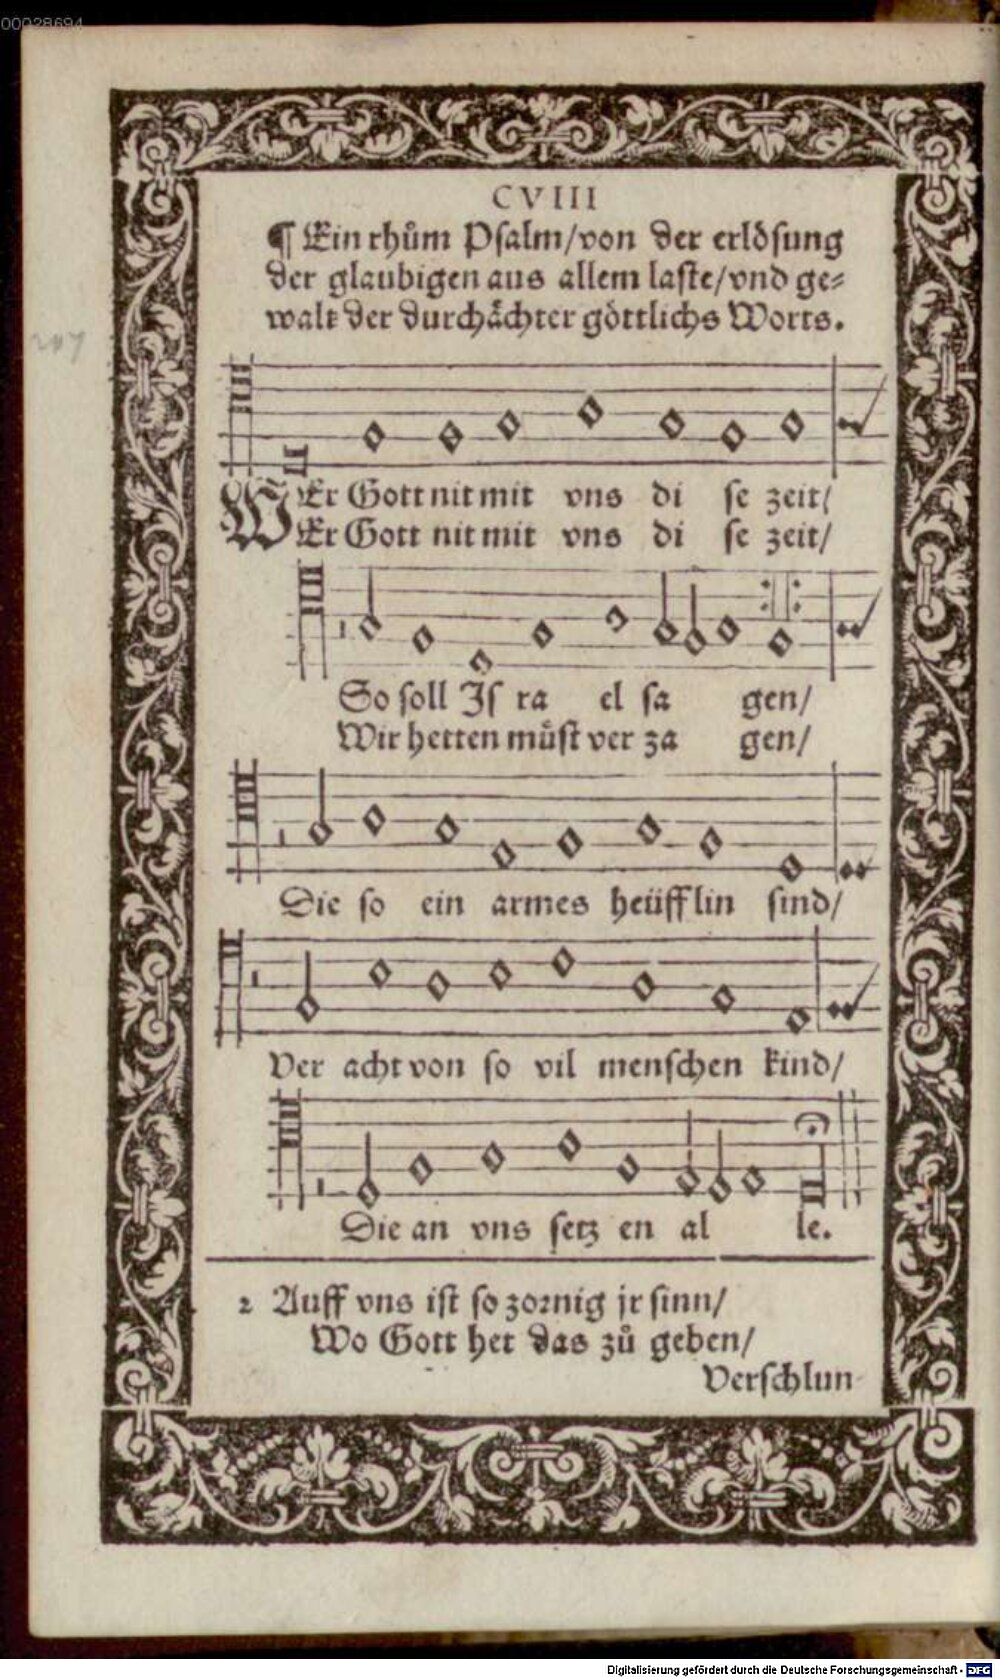 00028694
CVIII
¶ Ein rhům Psalm/von der erlösung
der glaubigen aus allem laste/vnd ge⸗
walt der durchächter göttlichs Worts.
207
WEr Gott nit mit vns di se zeit/
WEr Gott nit mit vns di se zeit/
So soll Is ra el sa gen/
Wir hetten müst ver za gen/
Die so ein armes heüfflin sind/
Ver acht von so vil menschen kind/
Die an vns setz en al le.
2 Auff vns ist so zornig jr sinn/
Wo Gott het das zů geben/
Verschlun-
Digitalisierung gefördert durch die Deutsche Forschungsgemeinschaft - DFG